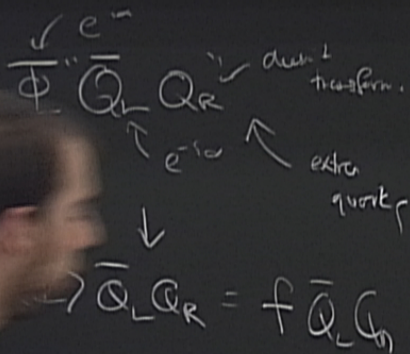 e^{-iα}
Φ̄ " Q̄_L Q_R " doesn't
transform.
e^{-iα}
extra
quarks
Q̄_L Q_R = f Q̄_L Q_R